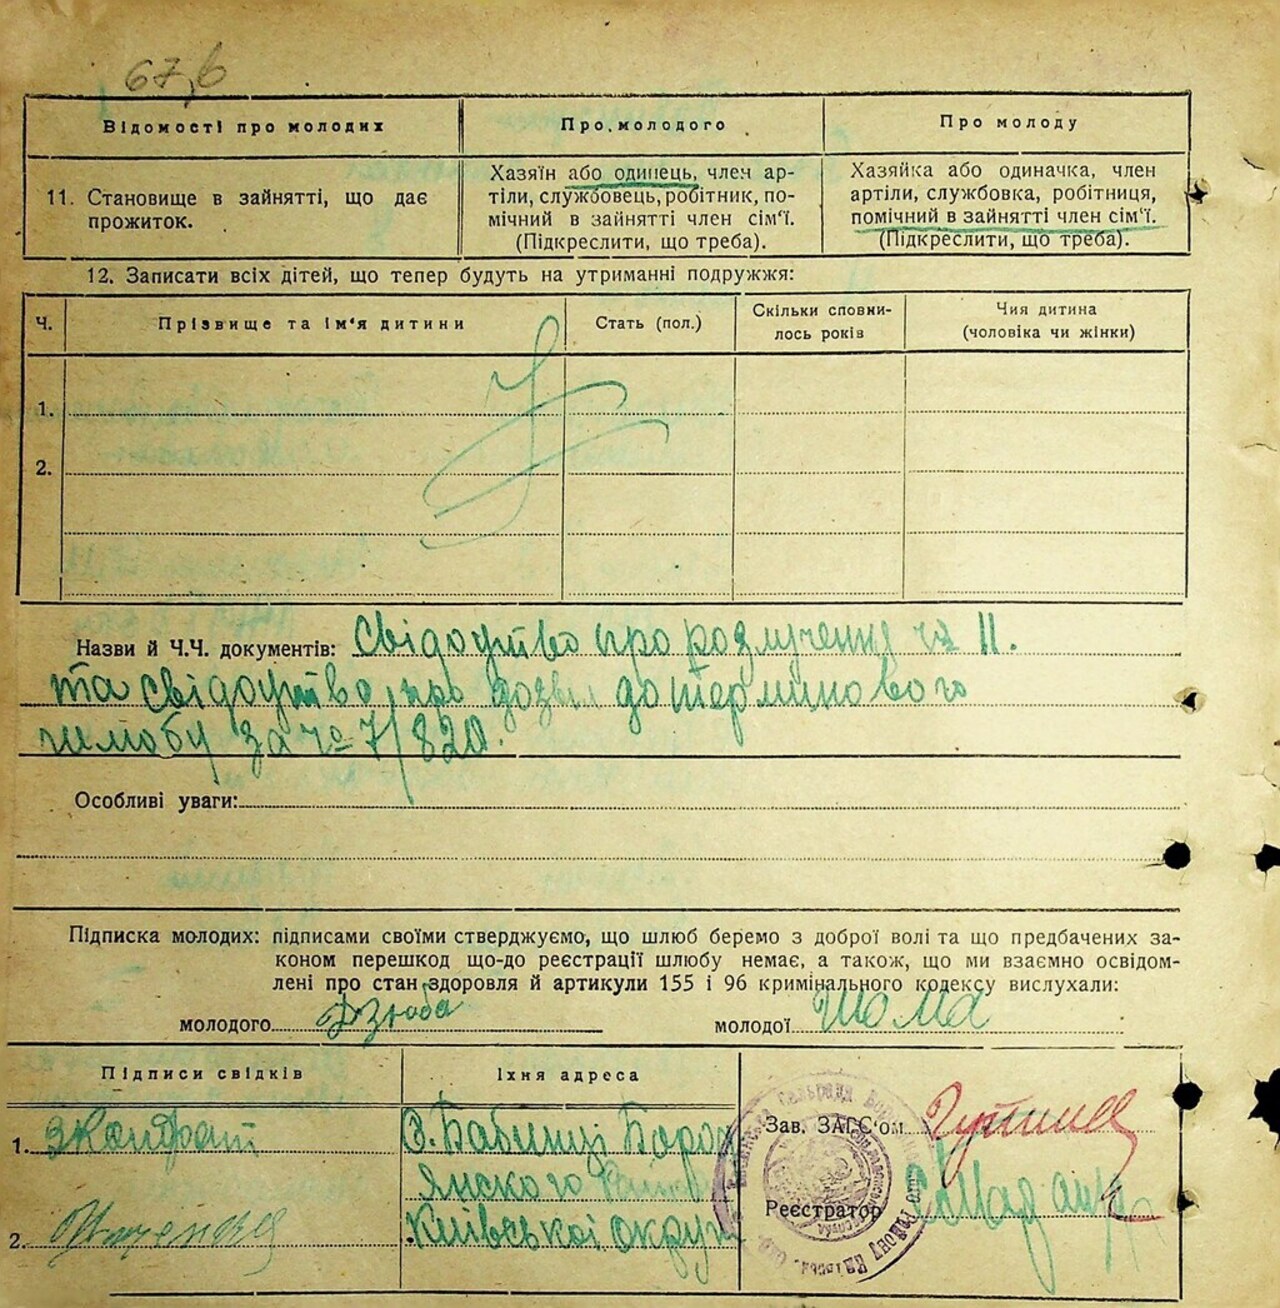 67,б
Відомості про молодих
Про молодого
Про молоду
11. Становище в зайнятті, що дає
прожиток.
Хазяїн або одинець, член ар-
тіли, службовець, робітник, по-
мічний в зайнятті член сім'ї.
(Підкреслити, що треба).
Хазяйка або одиначка, член
артіли, службовка, робітниця,
помічний в зайнятті член сім'ї.
(Підкреслити, що треба).
12. Записати всіх дітей, що тепер будуть на утриманні подружжя:
Ч.
Прізвище та ім'я дитини
Стать (пол.)
Скільки сповни-
лось років
Чия дитина
(чоловіка чи жінки)
1.
2.
Назви й Ч.Ч. документів: Свідоцтво про розлучення чр 11.
та свідоцтво про дозвіл дотерминового
шлюбу за ч° 7/820.
Особливі уваги:
Підписка молодих: підписами своїми стверджуємо, що шлюб беремо з доброї волі та що предбачених за-
коном перешкод що-до реєстрації шлюбу немає, а також, що ми взаємно освідом-
лені про стан здоровля й артикули 155 і 96 кримінального кодексу вислухали:
молодого Дзюба
молодої Шома
Підписи свідків
Їхня адреса
1. ЗКондрат
С. Бабинці Бород
янского Району
Київської округи
2.
Зав. ЗАГС'ом
Реєстратор